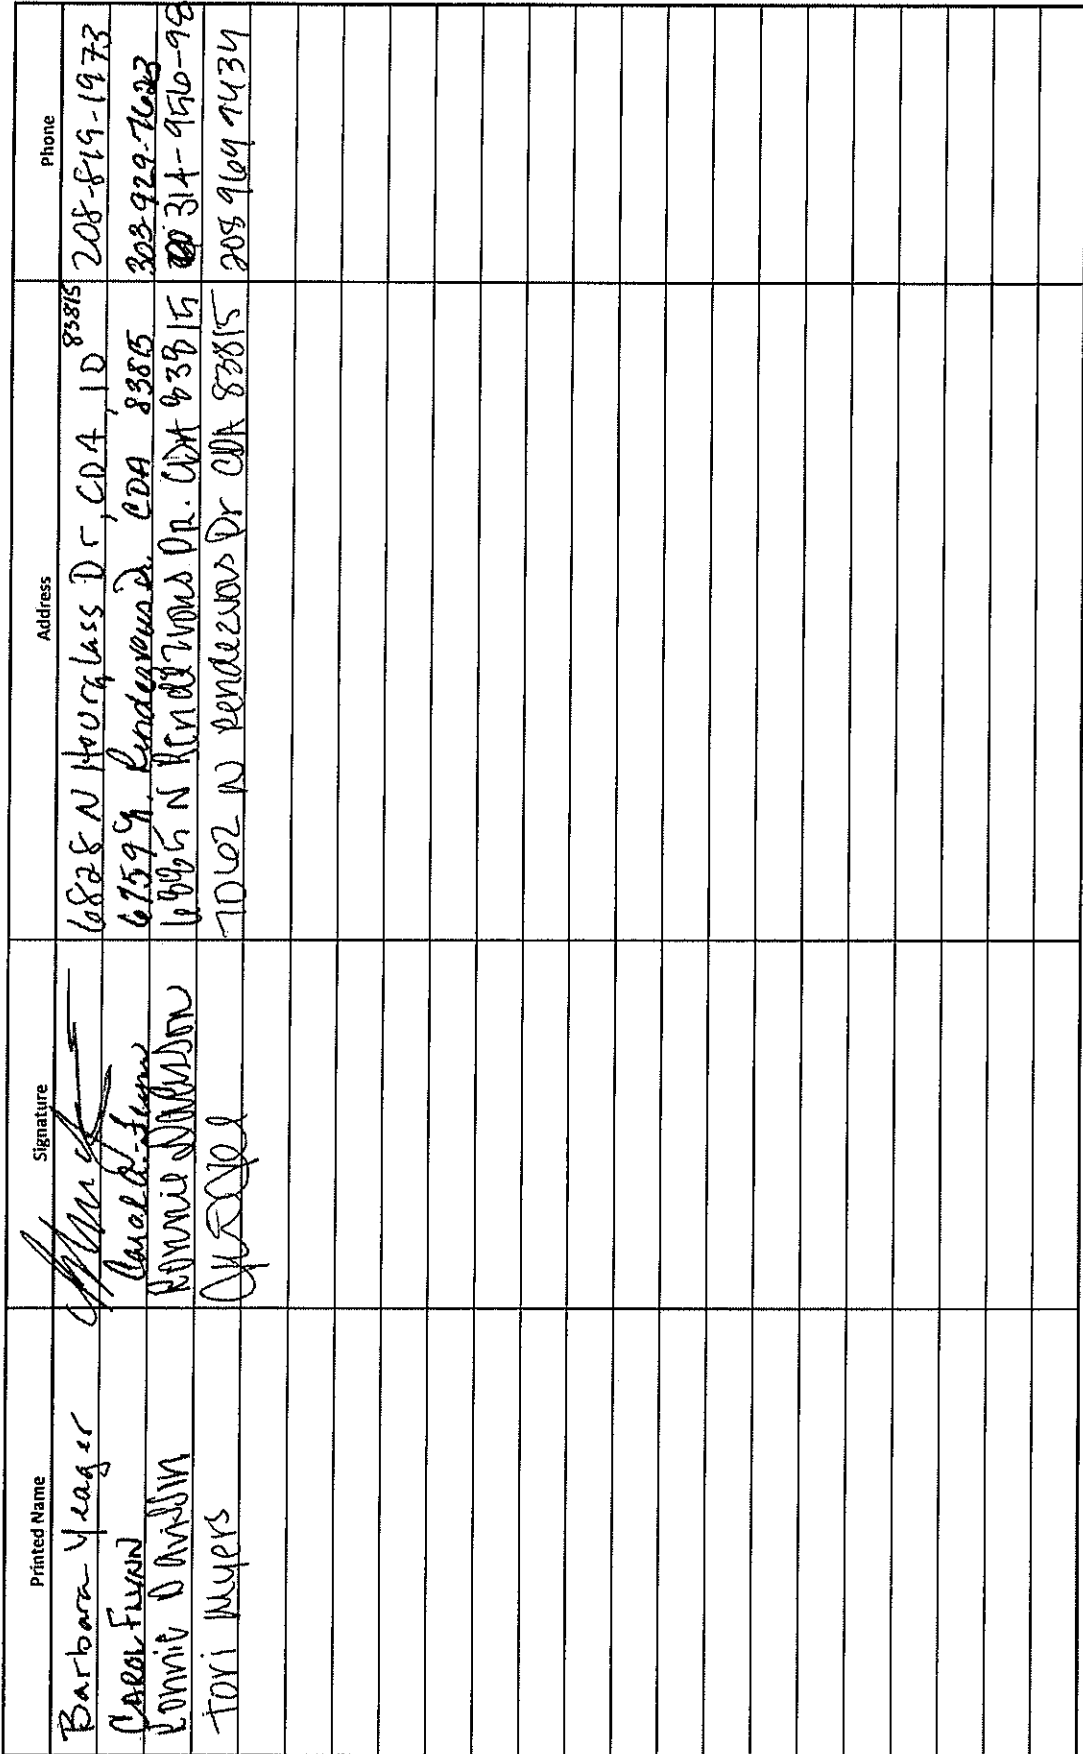 Printed Name Signature Address Phone
Barbara Yeager 6828 N Hourglass Dr, CDA, ID 83815 208-819-1973
CAROL FLYNN Carol A. Flynn 6759 N. Rendezvous Dr. CDA 83815 303-929-7623
Ronnie Davidson Ronnie Davidson 6885 N Rendezvous DR. CDA 83815 314-956-98
Tori Myers 7062 N Rendezvous Dr CDA 83815 208 964 7434